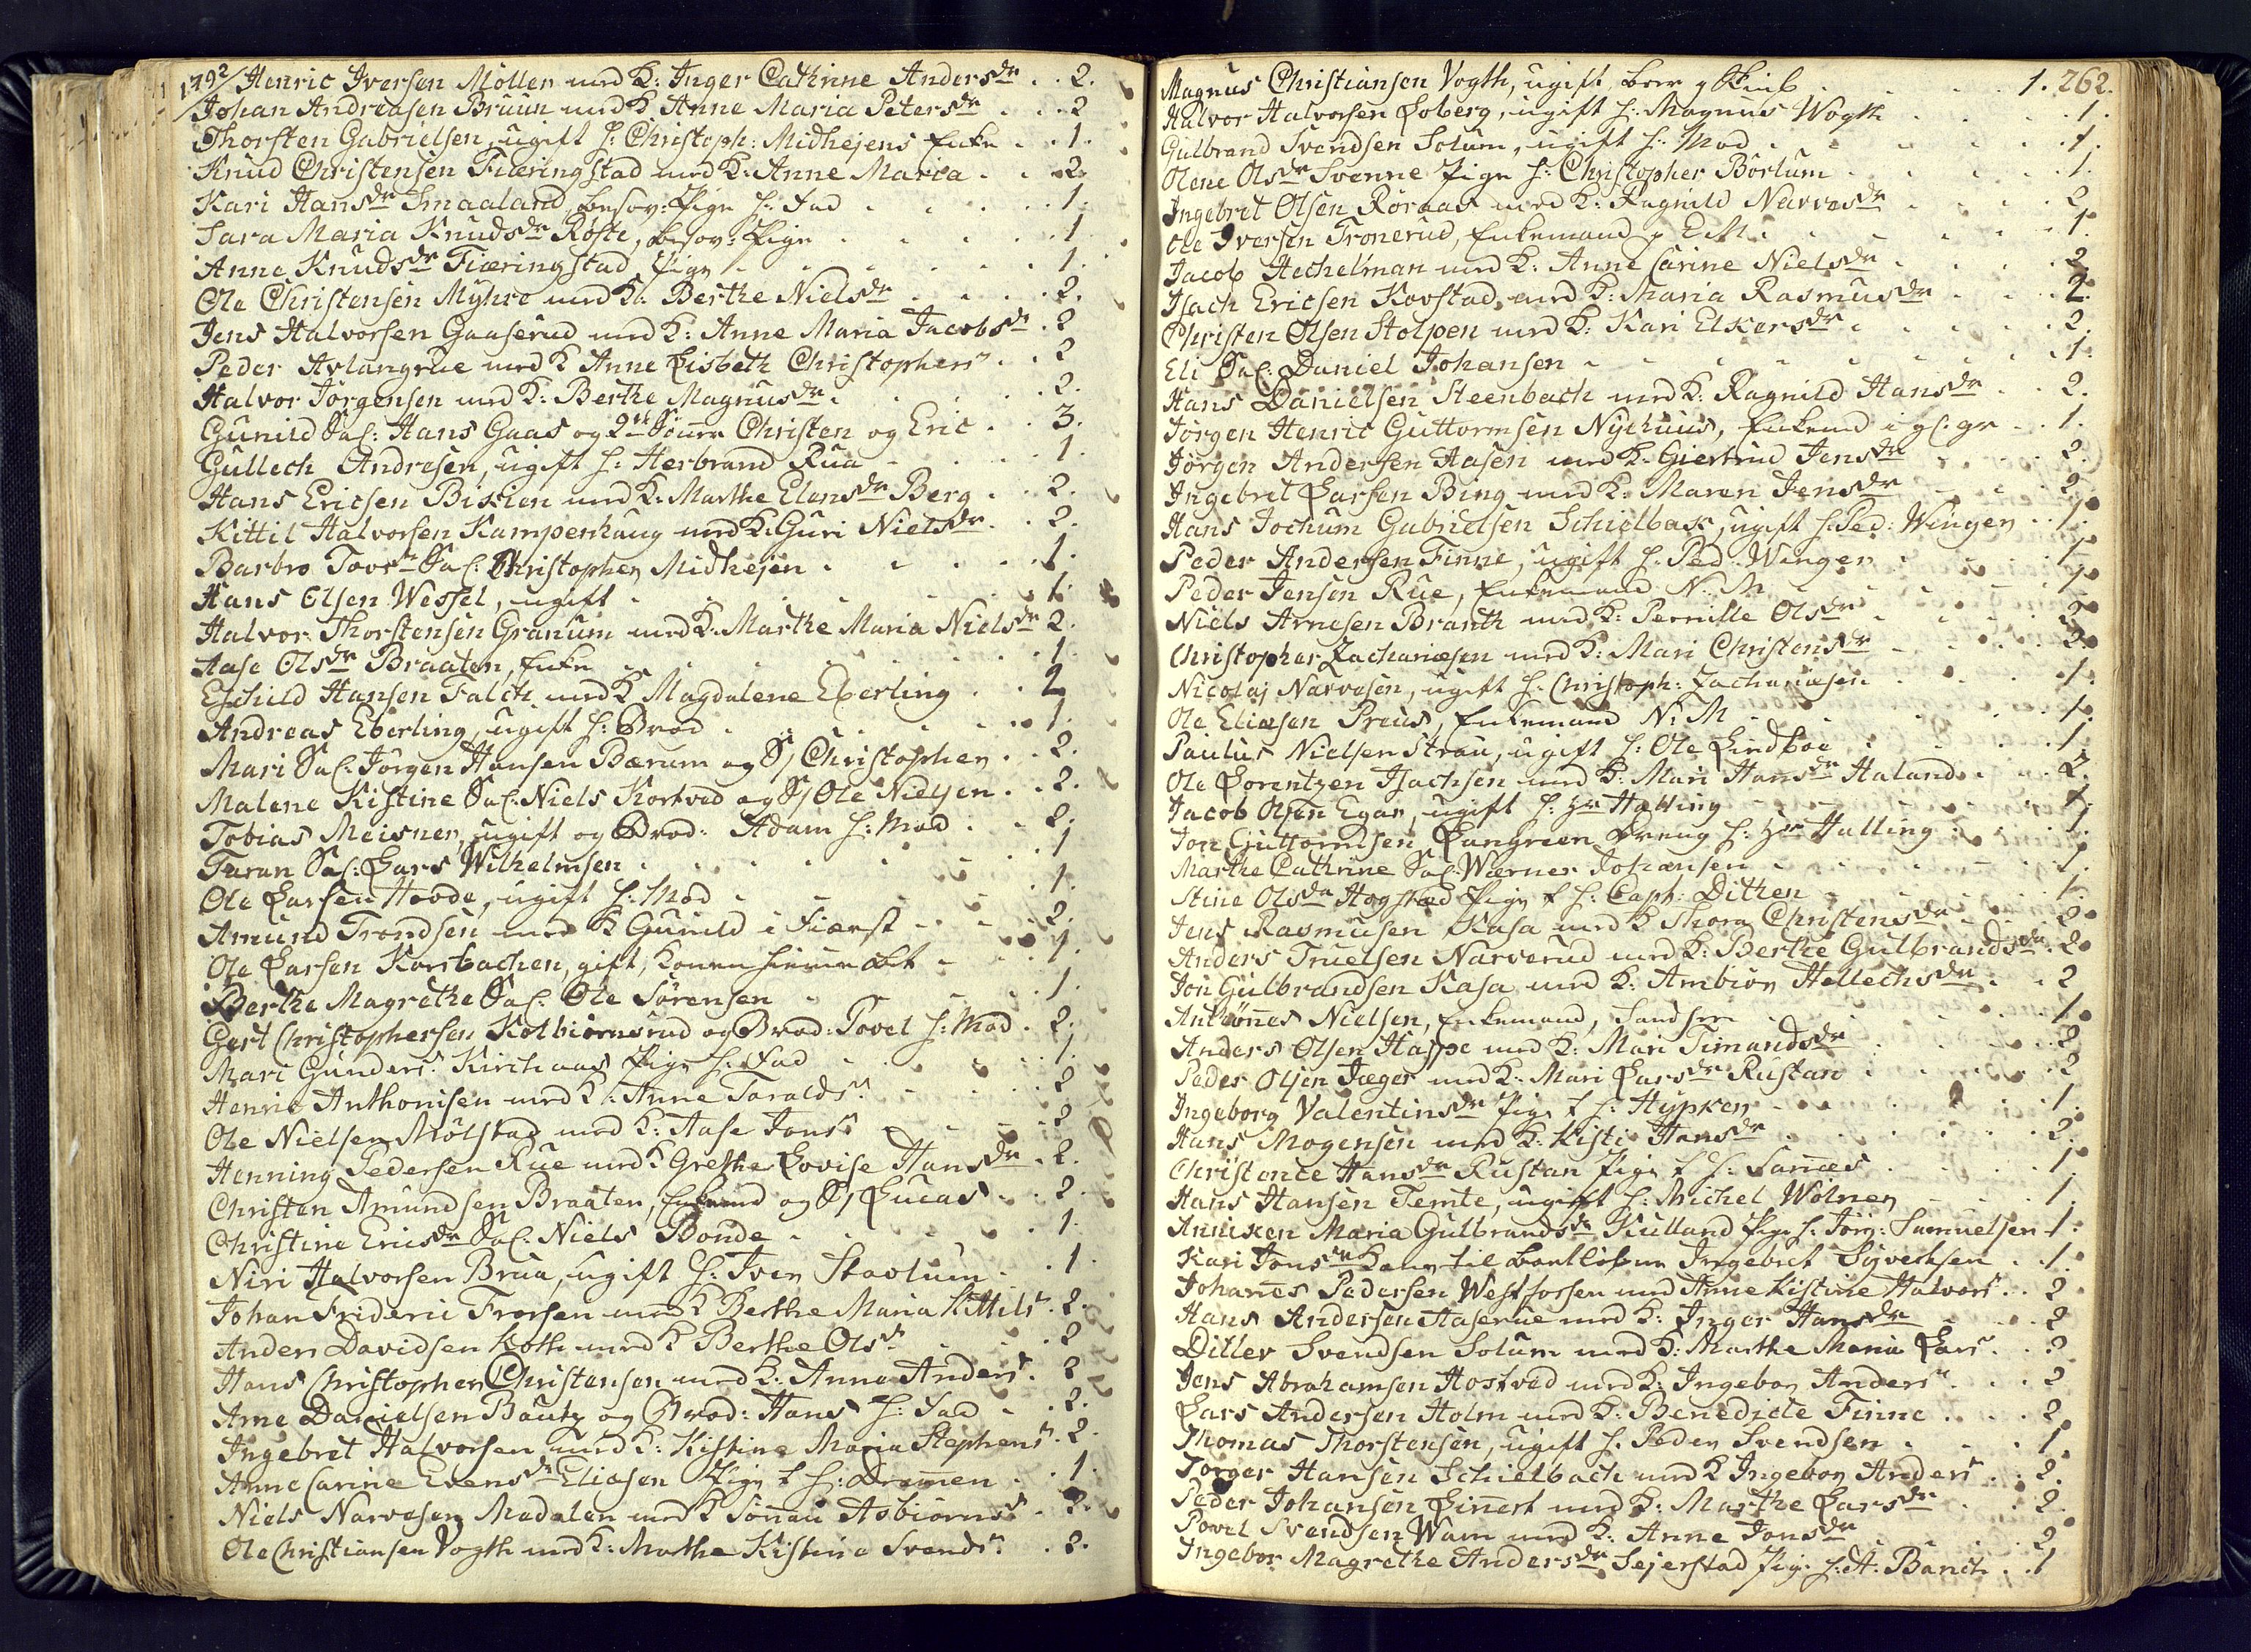 1792/ Henric Iversen Möller med K: Inger Cathrine Andersdr . . 2.
Johan Andreasen Bruun med K Anne Maria Petersdr . . . 2
Thorsten Gabrielsen, ugift h: Christoph: Midhejens Enke . . 1.
Knud Christensen Fiæringstad med K: Anne Maria . . . 2.
Kari Hansdr Smaaland, besov: Pige h: Fad . . . . . 1.
Sara Maria Knudsdr Röste, besov: Pige . . . . . 1.
Anne Knudsdr Fiæringstad Pige . . . . . . 1.
Ole Christensen Myhre med K: Berthe Nielsdr . . . . 2.
Jens Halvorsen Gaaserud med K: Anne Maria Jacobsdr . 2
Peder Avlangrue med K Anne Lisbeth Christophers . . . 2
Halvor Jörgensen med K: Berthe Magnusdr . . . . . 2.
Gunild Sal: Hans Gaas og 2de Sönner Christen og Eric . . 3.
Gullech Andresen, ugift h: Herbrand Rua . . . . 1
Hans Ericsen Biskien med K: Marthe Elensdr Berg . . 2.
Kittil Halvorsen Kampenhaug med K: Guri Nielsdr . . 2.
Barbro Tovs Sal: Christopher Midhejen . . . . . 1.
Hans Olsen Wessel, ugift . . . . . . 1.
Halvor Thorstensen Granum med K: Marthe Maria Nielsdr 2.
Aase Olsdr Braaten, Enke . . . . . . 1.
Eschild Hansen Falch med K Magdalene Eberling . . 2
Andreas Eberling, ugift h: Brod . . . . . . 1.
Mari Sal: Jörgen Hansen Bærum og S/ Christopher . . 2.
Malene Kistine Sal: Niels Kortved og S/ Ole Nielsen . . 2.
Tobias Meisner, ugift og Brod: Adam h: Mod . . 2.
Taran Sal: Lars Wilhelmsen . . . . . . 1
Ole Larsen Hovde, ugift h: Mod . . . . . 1.
Amund Trondsen med K Gunild i Fiærst . . . . 2.
Ole Larsen Korsbachen, gift, Konen . . 1.
Berthe Magrethe Sal: Ole Sörensen . . . . 1.
Gert Christophersen Kolbiörnsrud og Brod: Povel h: Mod . 2.
Mari Gunders Kirchaas Pige h: Fad . . . . 1.
Henric Anthonisen med K: Anne Taralds . . . . 2
Ole Nielsen Mölstad med K: Aase Jons . . . . 2
Henning Pedersen Rue med K Grethe Lovise Hansdr . 2.
Christen Amundsen Braaten, Enkemd og S/ Lucas . . 2.
Christine Ericsdr Sal: Niels Bonde . . . . . 1.
Niri Halvorsen Brua, ugift h: Iver Stavlum . . 1.
Johan Frideric Frorsen med K Berthe Maria Kittils . 2.
Anders Davidsen Koth med K Berthe Olsdr . . . 2
Hans Christopher Christensen med K: Anne Anders . 2
Arne Danielsen Bautz og Brod: Hans h: Fad . . 2.
Ingebret Halvorsen med K: Kistine Maria Stephens . 2.
Anne Carine Evensdr Eliasen Pige t h: Dramen . . 1.
Niels Narvesen Medalen med K Sönau Asbiörns . 2.
Ole Christiansen Vogth med K: Marthe Kistine Svends . . 2.
Magnus Christiansen Vogth, ugift . . . . . 1. 262.
Halvor Halvorsen Loberg, ugift h: Magnus Wogth . . . . 1.
Gulbrand Svendsen Solum, ugift h: Mod . . . . . 1.
Olene Olsdr Svenne Pige h: Christopher Börlum . . . . 1.
Ingebret Olsen Röraas med K: Ragnild Narvesdr . . . . 2
Ole Iversen Tronerud, Enkemand p E M . . . . . 1.
Jacob Hechelman med K: Anne Carine Nielsdr . . . . 2
Isach Ericsen Kovstad med K: Maria Rasmusdr . . . . 2.
Christen Olsen Stolpen med K: Kari Elkersdr . . . . . 2.
Eli Sal: Daniel Johansen . . . . . . . 1.
Hans Danielsen Steenbach med K: Ragnild Hansdr . . 2.
Jörgen Henric Guttormsen Nyehuus, Enkemd i gl: gr . . 1.
Jörgen Andersen Aasen med K: Giertrud Jensdr . . . . 2.
Ingebret Larsen Bing med K: Maren Jensdr . . . . 2
Hans Jochum Gabrielsen Schielbak, ugift h: Ped: Winger . . 1.
Peder Andersen Finne, ugift h: Ped: Winger . . . . . 1
Peder Jensen Rue, Enkemand N: M . . . . . . 1
Niels Arnesen Branth med K: Pernille Olsdr . . . . . 2
Christopher Zachariæsen med K: Mari Christensdr . . . . 2.
Nicolaj Narvesen, ugift h: Christoph: Zachariæsen . . . . 1.
Ole Eliæsen Preus, Enkemand N: M . . . . . . 1.
Paulus Nielsen Strau, ugift h: Ole Lindboe . . . . . 1.
Ole Lorentzen Isachsen med K: Mari Hansdr Haland . . . 2.
Jacob Olsen Egar, ugift h: Hr Halling . . . . . . 1.
Jon Guttormsen Langreen Dreng h: Hr Halling . . . . 1.
Marthe Cathrine Sal: Wærner Johansen . . . . . 1.
Stine Olsdr Hogstad Pige t h: Capt: Ditken . . . . . 1.
Jens Rasmusen Kasa med K Thora Christensdr . . . . 2
Anders Truelsen Narverud med K: Berthe Gulbrandsdr . 2
Jon Gulbrandsen Kasa med K: Ambiör Hellechsdr . . . 2
Anthönnes Nielsen, Enkemand, . . . . . 1.
Anders Olsen Happe med K: Mari Timandsdr . . . . . 2
Peder Olsen Jæger med K: Mari Larsdr Rustan . . . . . 2
Ingeborg Valentinsdr Pige t h: Hypken . . . . . 1.
Hans Mogensen med K: Kisti Hansdr . . . . . . 2.
Christence Hansdr Rustan Pige t h: Sannæs . . . . . 1.
Hans Hansen Temte, ugift h: Michel Wölner . . . . . 1.
Anniken Maria Gulbrandsdr Kulland Pige h: Jörg: Samuelsen 1.
Kari Jonsdr Kone til bortlöbne Ingebret Syvertsen . . 1.
Johannes Pedersen Westfossen med Anne Kistine Halvors . . 2
Hans Andersen Aaserue med K: Inger Hansdr . . . . 2
Ditlev Svendsen Solum med K: Marthe Maria Lars . . . 2
Jens Abrahamsen Hostved med K: Ingebor Anders . . . 2
Lars Andersen Holm med K: Benedicte Finne . . . . 2.
Thomas Thorstensen, ugift h: Peder Svendsen . . . . 1.
Torger Hansen Schielbach med K Ingebor Anders . . . 2.
Peder Johansen Linnert med K: Marthe Larsdr . . . 2.
Povel Svendsen Wam med K: Anne Jonsdr . . . . 2
Ingebor Magrethe Andersdr Sejerstad Pige h: A: Banch . . 1